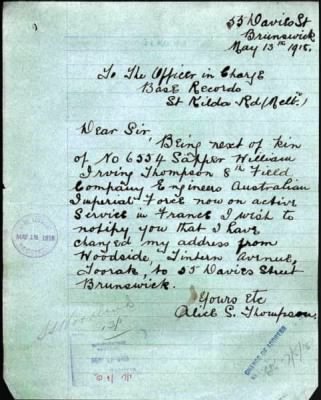 55 Davies St
Brunswick
May 13th 1918.
To The Officer in Charge
Base Records
St Kilda Rd (Melb.)
Dear Sir,
Being next of kin
of No 6554 Sapper William
Irving Thompson 8th Field
Company Engineers Australian
Imperial Force now on active
Service in France I wish to
notify you that I have
changed my address from
Woodside, Tintern Avenue,
Toorak, to 55 Davies Street
Brunswick.
Yours Etc
Alice S. Thompson.
MAY 15 1918
CHANGE OF ADDRESS